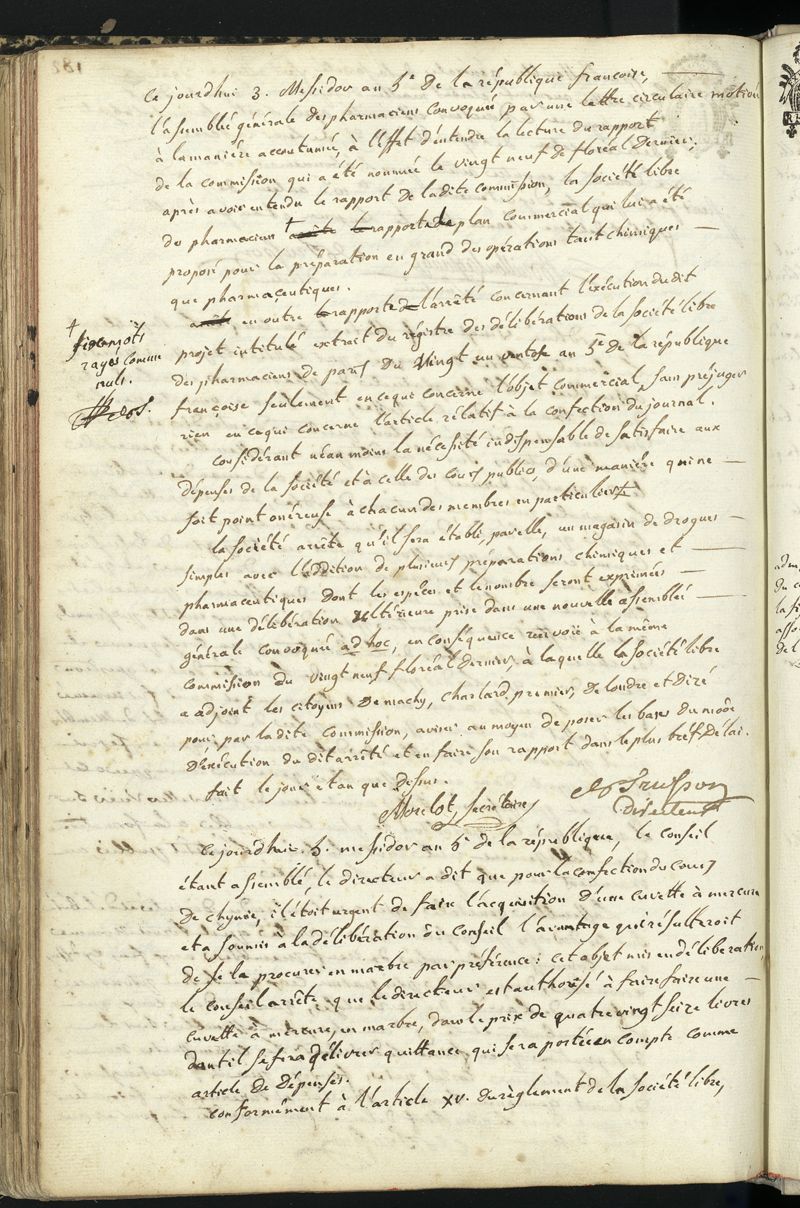 182
Ce jourdhui 3. Messidor an 5.e de la république françoise,
l'assemblée générale des pharmaciens convoquée par une lettre circulaire motivée
à la manière accoutumée, à l'effet d'entendre la lecture du rapport
de la commission qui a été nommée le vingt neuf de floréal dernier;
après avoir entendu le rapport de la dite commission, la société libre
des pharmaciens † rapporte le plan commercial qui lui a été
proposé pour la préparation en grand des opérations tant chimiques
que pharmaceutiques.
en outre rapporte l'arrêté concernant l'exécution du dit
projet intitulé extrait du régistre des délibérations de la société libre
des pharmaciens de paris du vingt un ventose an 5.e de la république
françoise seulement en ce qui concerne l'objet commercial, sans préjuger
rien en ce qui concerne l'article rélatif à la confection du journal.
Considérant néanmoins la nécessité indispensable de satisfaire aux
dépenses de la société et à celle des cours publics, d'une manière qui ne
soit point onéreuse à chacun des membres en particulier
la société arrête qu'il sera établi, par elle, un magasin de drogues
simples avec l'addition de plusieurs préparations chimiques et
pharmaceutiques dont les espèces et le nombre seront exprimées
dans une délibération ultérieure prise dans une nouvelle assemblée
générale convoquée ad hoc, en conséquence renvoie à la même
Commission du vingt neuf floréal dernier, à laquelle la société libre
a adjoint les citoyens Demachy, Charlard premier, De londre et Dizé
pour, par la dite commission, aviser au moyen de poser les bases du mode
d'exécution du dit arrêté et en faire son rapport dans le plus bref délai.
fait le jour et an que dessus.
† six mots
rayés comme
nuls.
Morelot, Secrétaire
Trusson
Directeur
Ce jourdhui 5. messidor an 5.e de la république, le Conseil
étant assemblé, le directeur a dit que pour la confection du cours
de chymie, il étoit urgent de faire l'acquisition d'une cuvette à mercure
et a soumis à la délibération du Conseil l'avantage qui résulteroit
de se la procurer en marbre par préférence: cet objet mis en délibération,
le conseil arrête que le directeur est authorisé à faire faire une
cuvette à mercure, en marbre, dans le prix de quatre vingt seize livres
dont il se fera délivrer quittance qui sera portée en compte comme
article de dépenses.
Conformément à l'article XV. du règlement de la société libre,